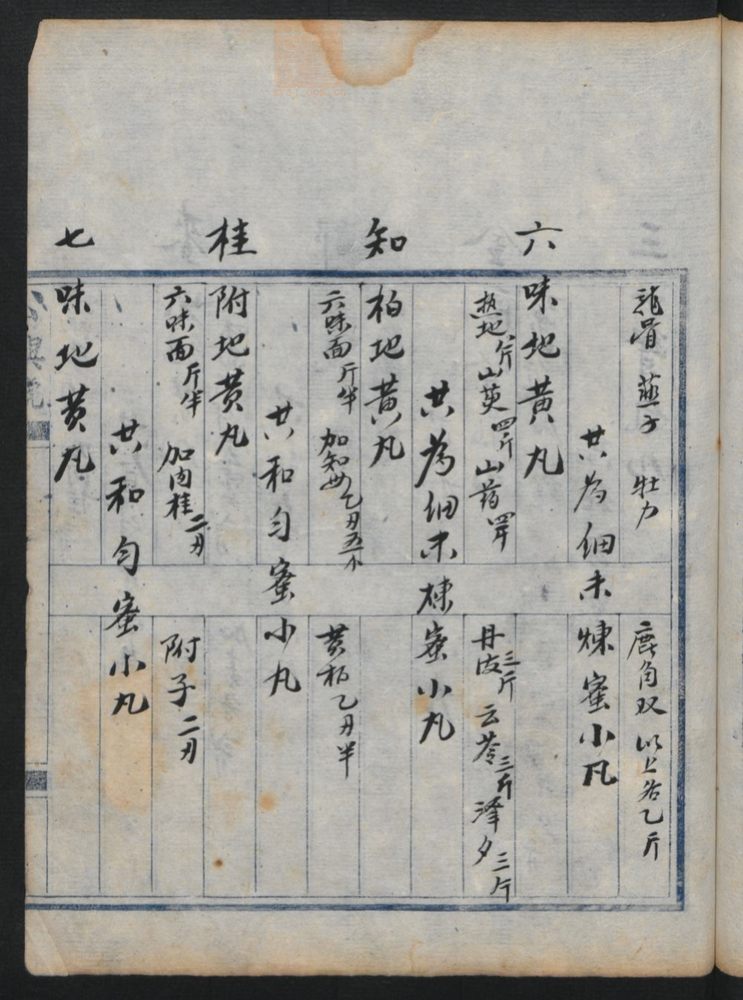 龍骨 燕子 牡力 鹿角双 以上各乙斤
共為細末煉蜜小凡
六味地黃丸
熟地八斤 山萸四斤 山葯四斤 丹皮三斤 云苓三斤 泽夕三斤
共為細末煉蜜小丸
知柏地黃丸
六味面斤半 加知母乙刃五个 黄柏乙刃半
共和勻蜜小丸
桂附地黃丸
六味面斤半 加肉桂二刃 附子二刃
共和勻蜜小丸
七味地黃丸